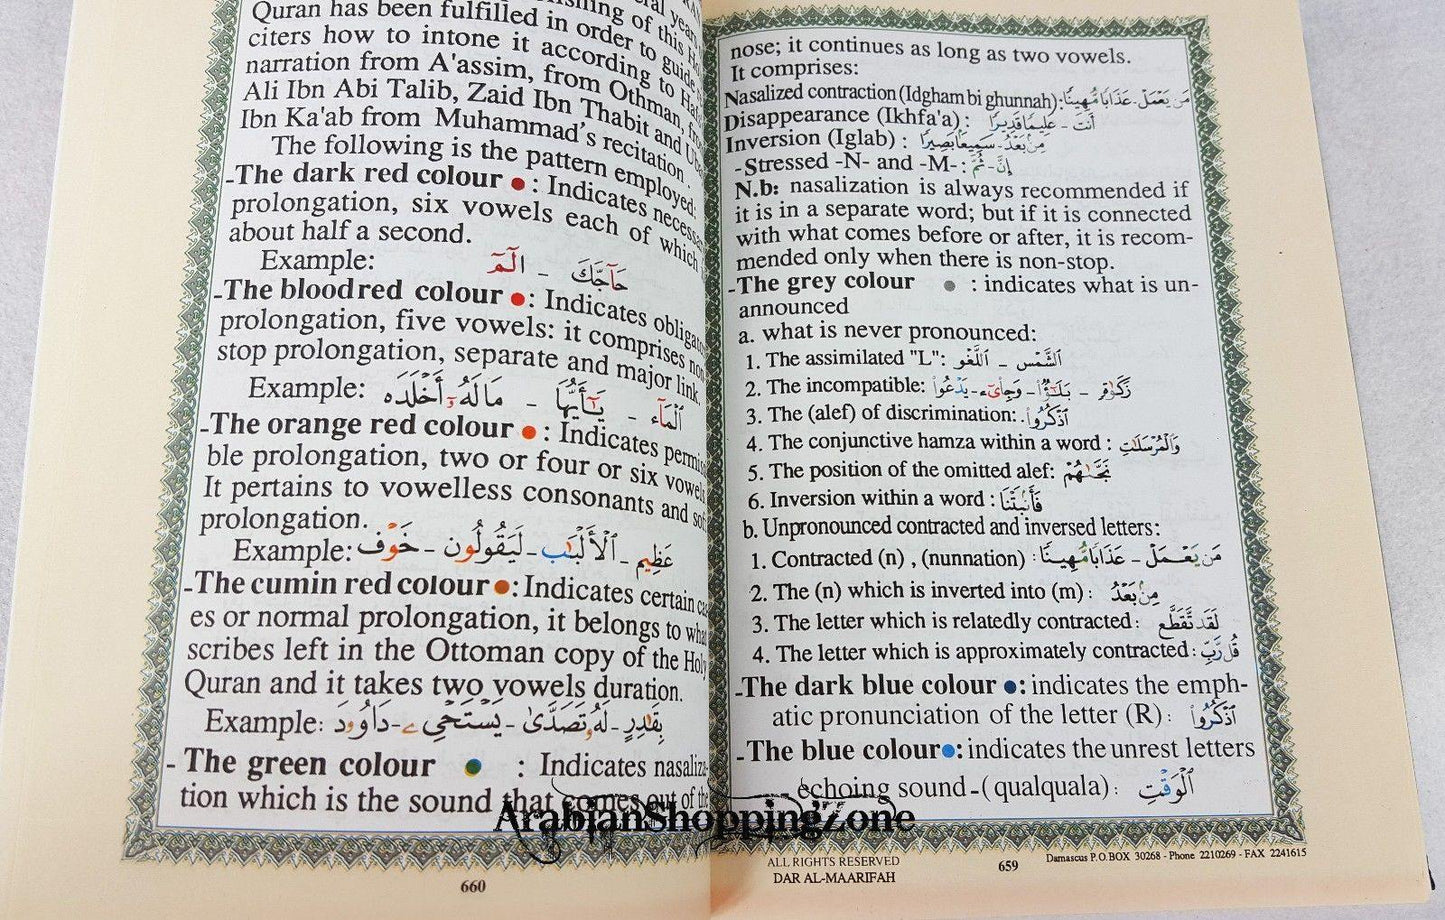 Quran has been fulfilled in order to guide
citers how to intone it according to
narration from A'assim, from Othman,
Ali Ibn Abi Talib, Zaid Ibn Thabit and
Ibn Ka'ab from Muhammad's recitation.
The following is the pattern employed:
-The dark red colour : Indicates
prolongation, six vowels each of which
about half a second.
Example: حَآجَّكَ - الٓمٓ
-The bloodred colour : Indicates
prolongation, five vowels: it comprises
stop prolongation, separate and major link.
Example: ٱلْمَآءِ - يَٰٓأَيُّهَا - مَالَهُۥٓ أَخْلَدَهُ
-The orange red colour : Indicates
ble prolongation, two or four or six
It pertains to vowelless consonants and
prolongation.
Example: عَظِيم - ٱلْأَلْبَٰب - لَيَقُولُون - خَوْف
-The cumin red colour : Indicates certain
es or normal prolongation, it belongs to
scribes left in the Ottoman copy of the Holy
Quran and it takes two vowels duration.
Example: بِقَٰدِرٍ - لَهُۥ تَصَدَّىٰ - يَسْتَحْيِۦ - دَاوُۥدَ
- The green colour : Indicates nasaliza-
tion which is the sound that comes out of the
660
nose; it continues as long as two vowels.
It comprises:
Nasalized contraction (Idgham bi ghunnah): مَن يَعْمَلْ - عَذَابًا مُّهِينًا
Disappearance (Ikhfa'a) : أَنتَ - عَلِيمًا قَدِيرًا
Inversion (Iglab) : مِنۢ بَعْدُ - سَمِيعًۢا بَصِيرًا
-Stressed -N- and -M- : إِنَّ - ثُمَّ
N.b: nasalization is always recommended if
it is in a separate word; but if it is connected
with what comes before or after, it is recom-
mended only when there is non-stop.
-The grey colour : indicates what is un-
announced
a. what is never pronounced:
1. The assimilated "L": ٱلشَّمْس - ٱللَّغْو
2. The incompatible:
3. The (alef) of discrimination: ٱذْكُرُوا۟
4. The conjunctive hamza within a word : وَٱلْمُرْسَلَٰتِ
5. The position of the omitted alef:
6. Inversion within a word : فَأَنۢبَتْنَا
b. Unpronounced contracted and inversed letters:
1. Contracted (n) , (nunnation) : مَن يَعْمَلْ - عَذَابًا مُّهِينًا
2. The (n) which is inverted into (m) : مِنۢ بَعْدُ
3. The letter which is relatedly contracted : لَقَد تَّقَطَّعَ
4. The letter which is approximately contracted : قُل رَّبِّ
-The dark blue colour : indicates the emph-
atic pronunciation of the letter (R) : ٱذْكُرُوا۟
-The blue colour : indicates the unrest letters
echoing sound -( qualquala) : ٱلْوَقْتِ
ALL RIGHTS RESERVED
DAR AL-MAARIFAH
659
Damascus P.O.BOX 30268 - Phone 2210269 - FAX 2241615
ArabianShoppingZone